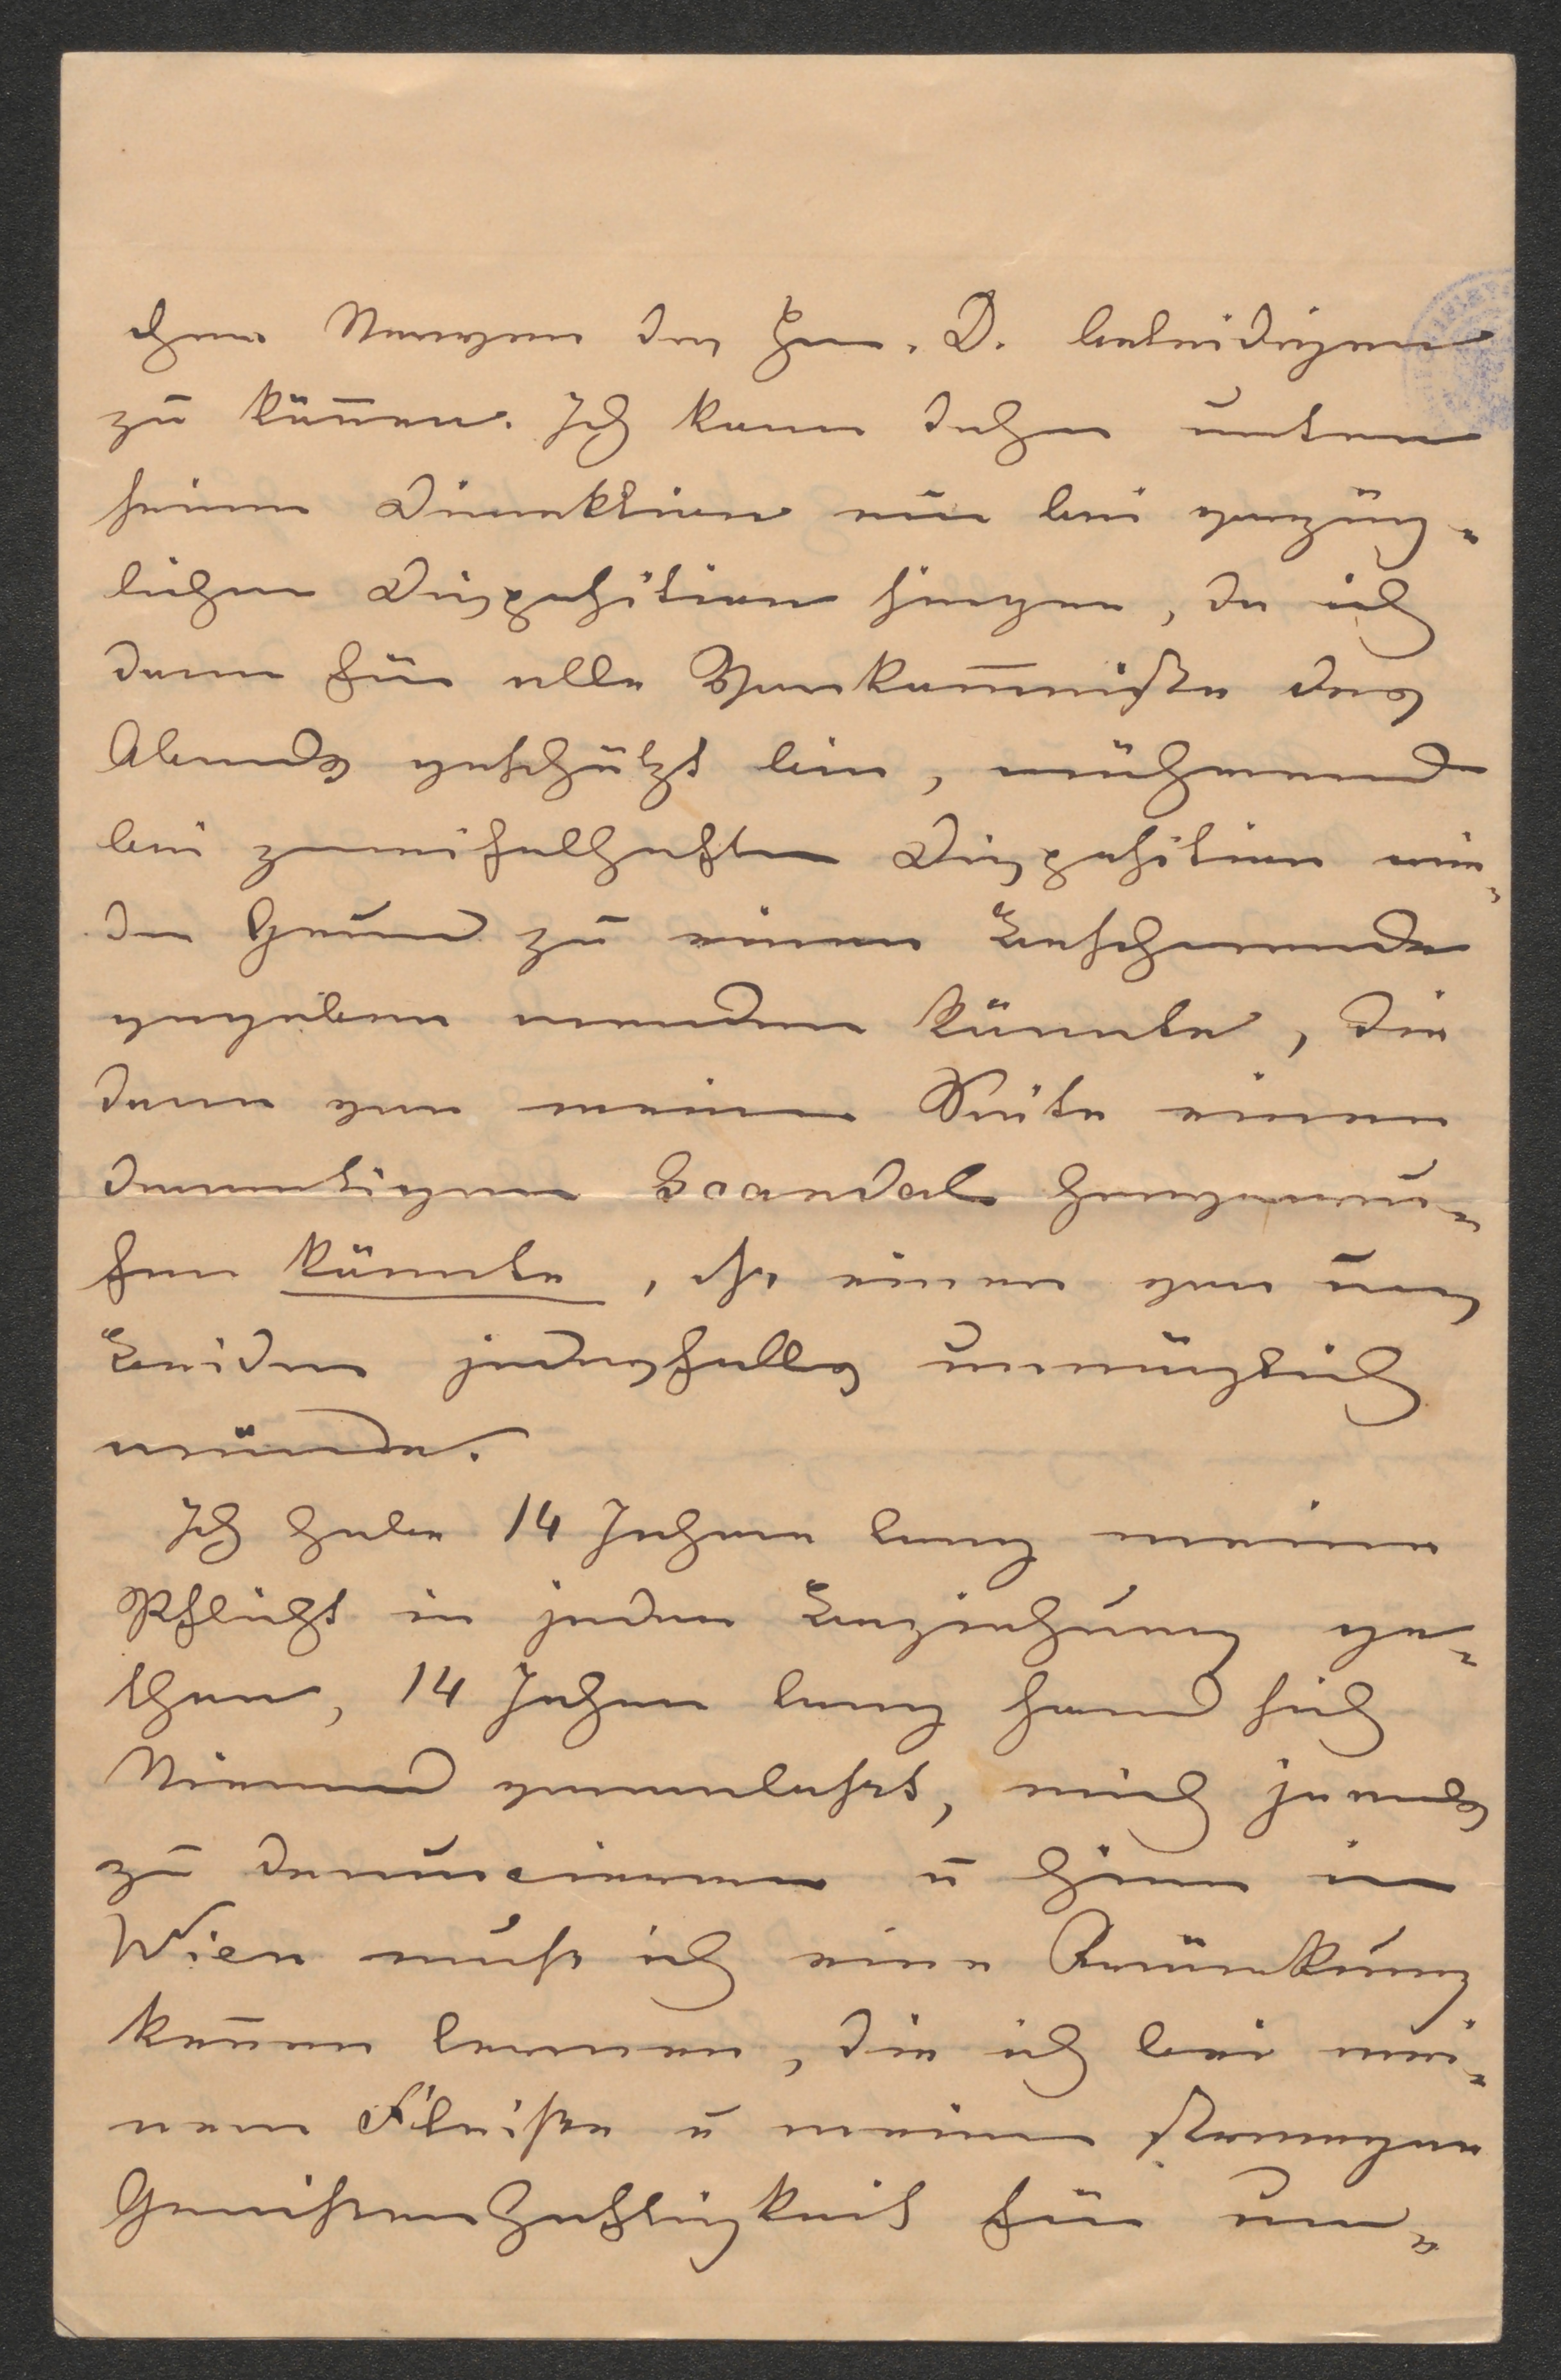 chen Nerven des Hrn. D. beleidigen
zu können. Ich kann daher unter
seiner Direktion nur bei vorzüg-
licher Disposition singen, da ich
dann für alle Vorkommniße des
Abends geschützt bin, während
bei zweifelhafter Disposition wie-
der Grund zu einer Beschwerde
gegeben werden könnte, die
dann von meiner Seite einen
derartigen Scandal hervorru-
fen könnte, daß einer von uns
Beiden jedesfalls unmöglich
würde.
Ich habe 14 Jahre lang meine
Pflicht in jeder Beziehung ge-
than, 14 Jahre lang fand sich
Niemand veranlaßt, mich jemals
zu denuncieren u hier in
Wien muß ich eine Kränkung
kennen lernen, die ich bei mei-
nem Fleiße u meiner strengen
Gewißenhaftigkeit für un-